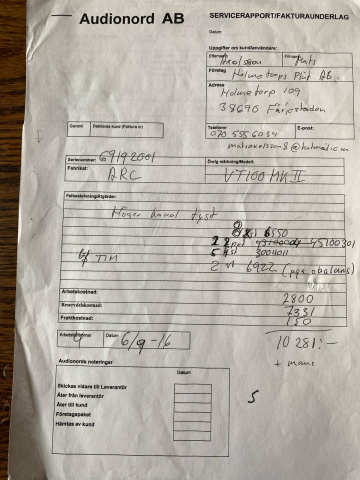 Audionord AB
SERVICERAPPORT/FAKTURAUNDERLAG
Datum:
Uppgifter om kund/användare:
Efternamn Axelsson Förnamn Mats
Företag Holmetorps Plåt AB
Adress
Holmetorp 109
38690 Färjestaden
Garanti Debiteras kund (Faktura nr)
Telefonnr E-post:
070 555 60 34
Serienummer: 69192001
Fabrikat: Övrig märkning/Modell:
ARC VT100 MK II
Felbeskrivning/Åtgärder:
Höger kanal tyst
8 st 6550
45100301
5 st 30011011
4 TIM
2 st 6922 (pga obalans)
Arbetskostnad: 2800
Reservdelskostnad: 7331
Fraktkostnad: 150
Arbetstimmar Datum
4 6/9-16
10 281:-
+ moms
Audionords noteringar
Datum
Skickas vidare till Leverantör
Åter från leverantör
Åter till kund
Företagspaket
Hämtas av kund
5